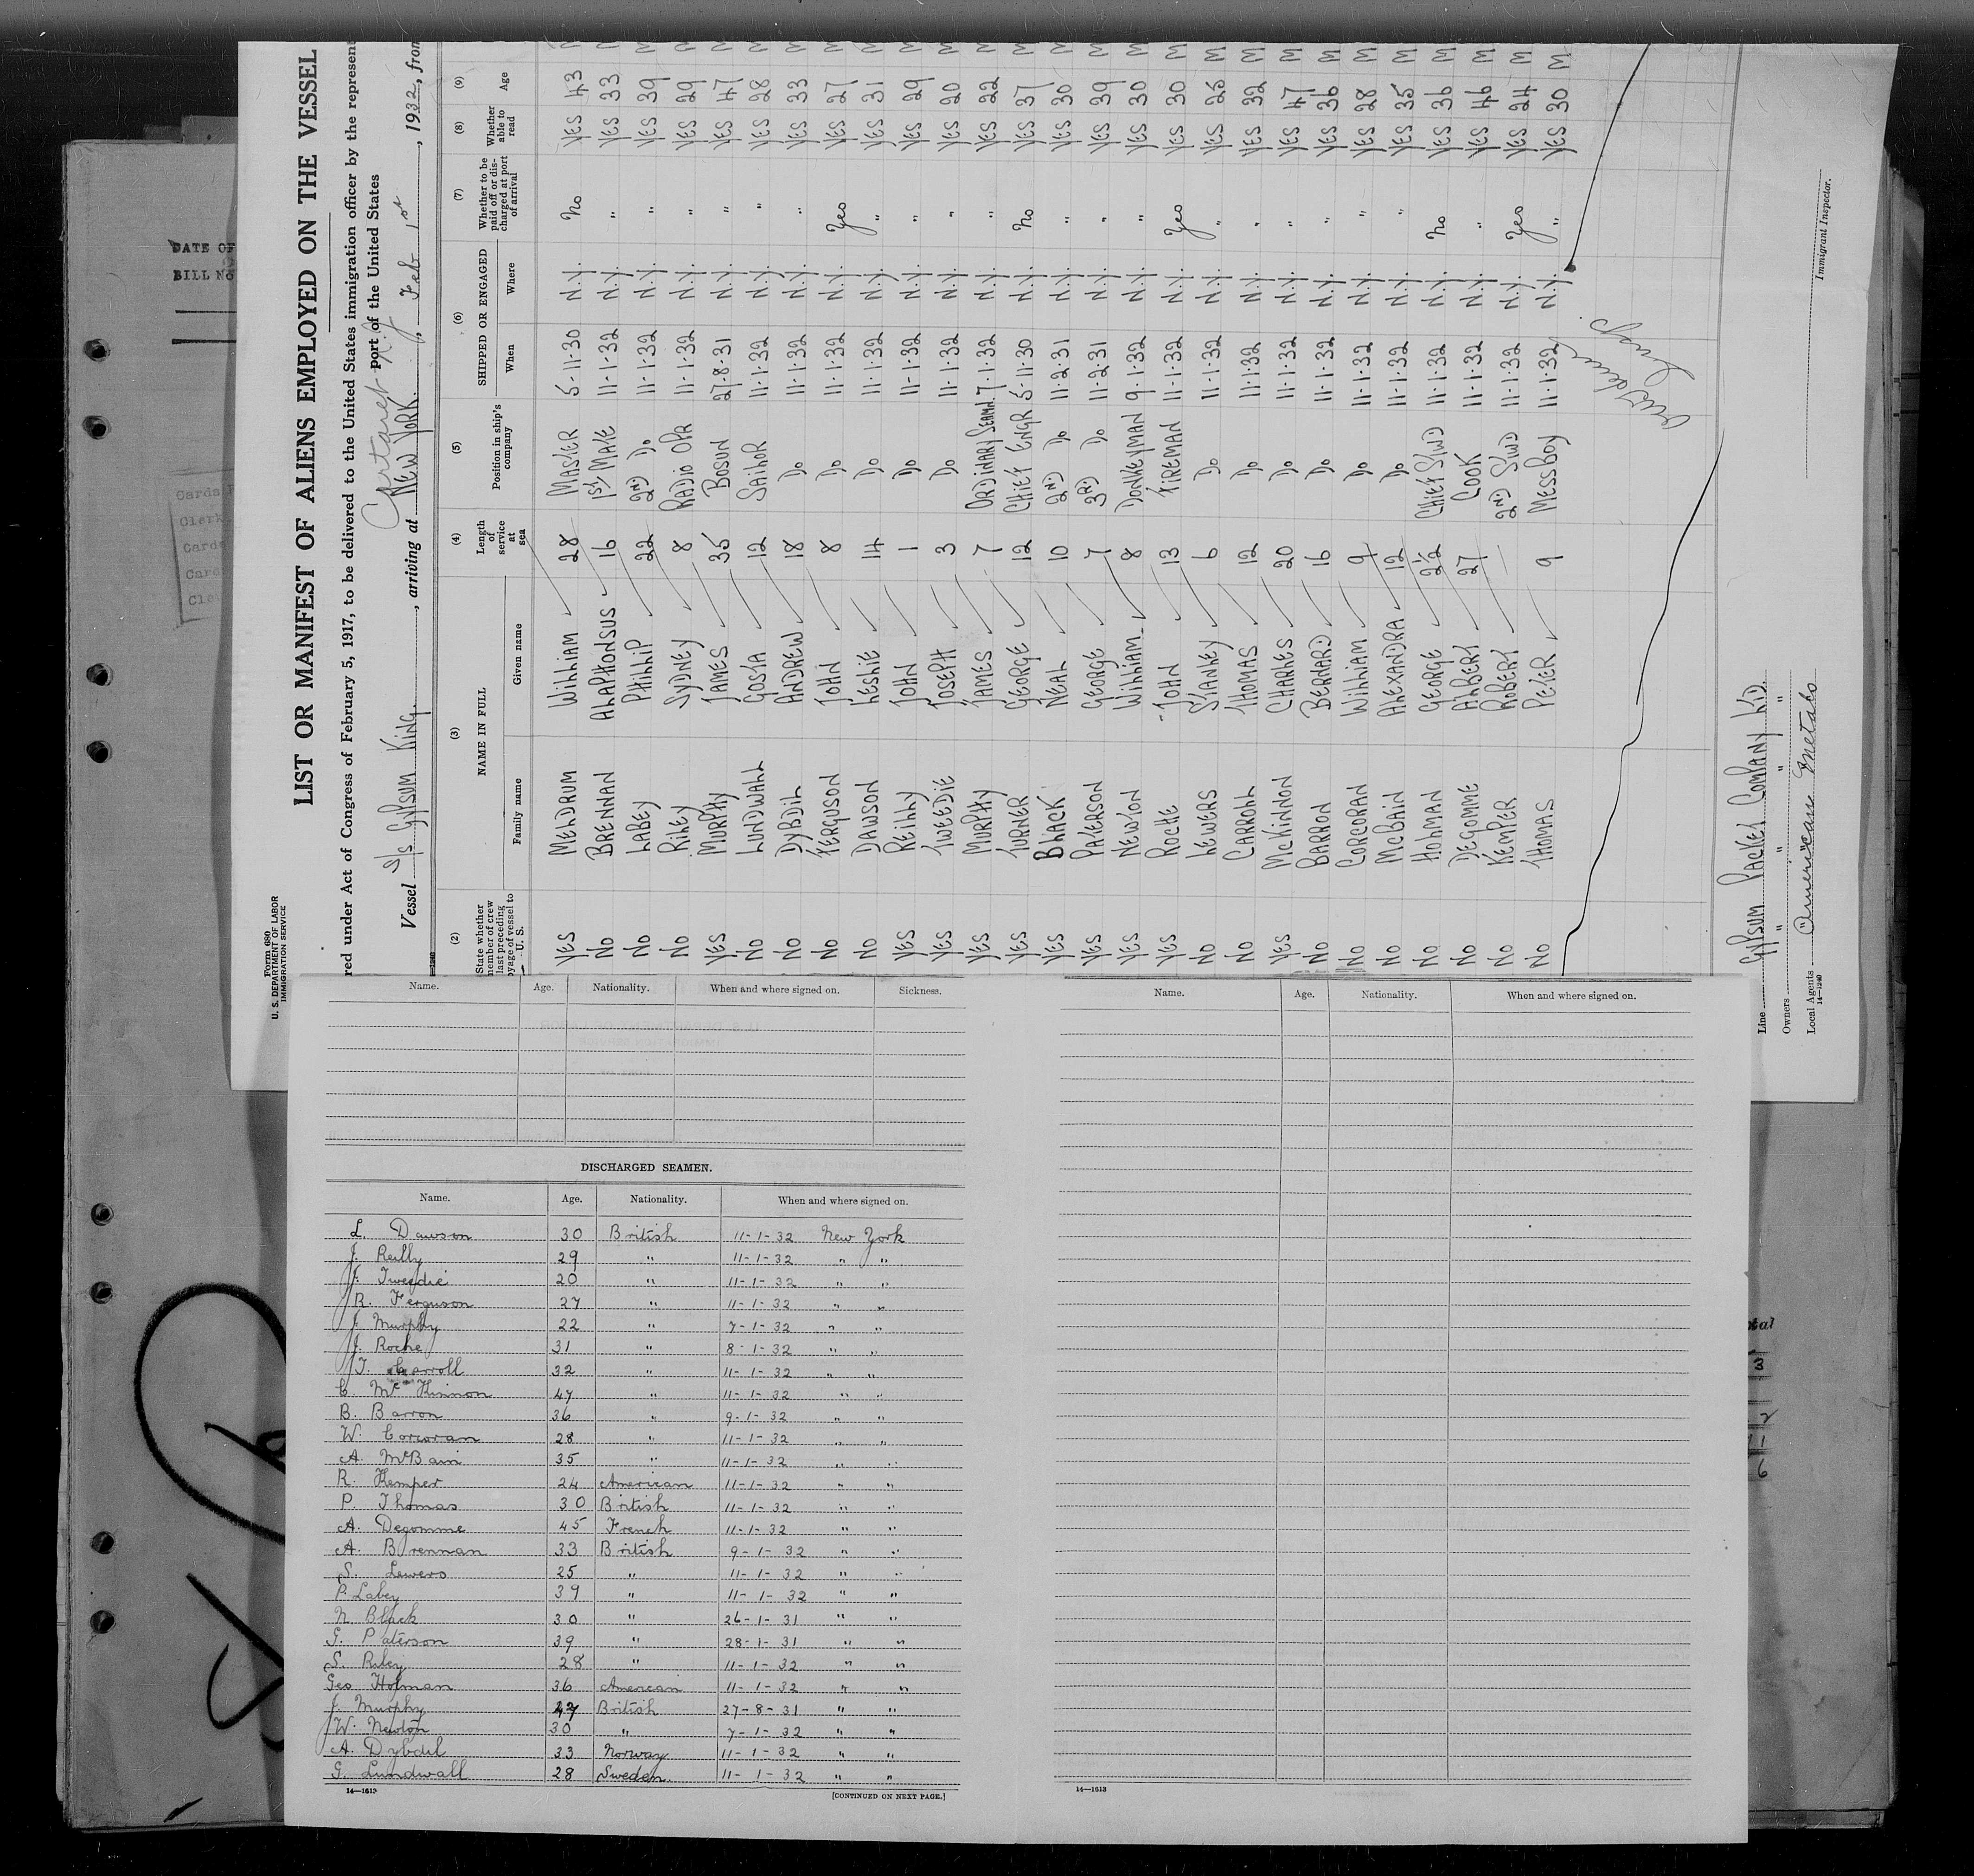 DATE OF
BILL No
Cards
Clerk
Cards
Card
Cle
Form 680
U. S. DEPARTMENT OF LABOR
IMMIGRATION SERVICE
LIST OR MANIFEST OF ALIENS EMPLOYED ON THE VESSEL
red under Act of Congress of February 5, 1917, to be delivered to the United States immigration officer by the represent
port of the United States
Vessel S/S GYPSUM KING, arriving at NEW YORK, Feb 1st, 1932, from
(2) (3) (4) (5) (6) (7) (8) (9)
State whether member of crew last preceding voyage of vessel to U. S. NAME IN FULL Length of service at sea Position in ship's company SHIPPED OR ENGAGED Whether to be paid off or discharged at port of arrival Whether able to read Age
Family name Given name When Where
YES MELDRUM WILLIAM 28 MASTER 5-11-30 N.Y. No YES 43 M
NO BRENNAN ALAPHONSUS 16 1ST MATE 11-1-32 N.Y. " YES 33 M
NO LABEY PHILLIP 22 2ND DO 11-1-32 N.Y. " YES 39 M
NO RILEY SYDNEY 8 RADIO OPR 11-1-32 N.Y. " YES 29 M
YES MURPHY JAMES 35 BOSUN 27-8-31 N.Y. " YES 47 M
NO LUNDWALL GOSTA 12 SAILOR 11-1-32 N.Y. " YES 28 M
NO DYBDIL ANDREW 18 DO 11-1-32 N.Y. " YES 33 M
NO FERGUSON JOHN 8 DO 11-1-32 N.Y. Yes YES 27 M
NO DAWSON LESLIE 14 DO 11-1-32 N.Y. " YES 31 M
YES REILLY JOHN 1 DO 11-1-32 N.Y. " YES 29 M
YES TWEEDIE JOSEPH 3 DO 11-1-32 N.Y. " YES 20 M
YES MURPHY JAMES 7 ORDINARY SEAMN. 7-1-32 N.Y. " YES 22 M
YES TURNER GEORGE 12 CHIEF ENGR 5-11-30 N.Y. No YES 37 M
YES BLACK NEAL 10 2ND DO 11-2-31 N.Y. " YES 30 M
YES PATERSON GEORGE 7 3RD DO 11-2-31 N.Y. " YES 39 M
YES NEWTON WILLIAM 8 DONKEYMAN 9-1-32 N.Y. " YES 30 M
YES ROCHE JOHN 13 FIREMAN 11-1-32 N.Y. Yes YES 30 M
NO LEWERS STANLEY 6 DO 11-1-32 N.Y. " YES 25 M
NO CARROLL THOMAS 12 DO 11-1-32 N.Y. " YES 32 M
YES McKINNON CHARLES 20 DO 11-1-32 N.Y. " YES 47 M
NO BARRON BERNARD 16 DO 11-1-32 N.Y. " YES 36 M
NO CORCORAN WILLIAM 9 DO 11-1-32 N.Y. " YES 28 M
NO McBAIN ALEXANDRA 12 DO 11-1-32 N.Y. " YES 35 M
NO HOLMAN GEORGE 2½ CHIEF STWD 11-1-32 N.Y. No YES 36 M
NO DEGOMME ALBERT 27 COOK 11-1-32 N.Y. " YES 46 M
NO KEMPER ROBERT 2ND STWD 11-1-32 N.Y. Yes YES 24 M
NO THOMAS PETER 9 MESSBOY 11-1-32 N.Y. " YES 30 M
Line GYPSUM PACKET COMPANY LTD.
Owners " " " "
Local Agents American Metals
14—1240
Immigrant Inspector.
Name. Age. Nationality. When and where signed on. Sickness.
DISCHARGED SEAMEN.
Name. Age. Nationality. When and where signed on.
L. Dawson 30 British 11-1-32 New York
J. Reilly 29 " 11-1-32 " "
J. Tweedie 20 " 11-1-32 " "
R. Ferguson 27 " 11-1-32 " "
J. Murphy 22 " 7-1-32 " "
J. Roche 31 " 8-1-32 " "
T. Carroll 32 " 11-1-32 " "
C. McKinnon 47 " 11-1-32 " "
B. Barron 36 " 9-1-32 " "
W. Corcoran 28 " 11-1-32 " "
A. McBain 35 " 11-1-32 " "
R. Kemper 24 American 11-1-32 " "
P. Thomas 30 British 11-1-32 " "
A. Degomme 45 French 11-1-32 " "
A. Brennan 33 British 9-1-32 " "
S. Lewers 25 " 11-1-32 " "
P. Labey 39 " 11-1-32 " "
N. Black 30 " 26-1-31 " "
G. Paterson 39 " 28-1-31 " "
S. Riley 28 " 11-1-32 " "
Geo Holman 36 American 11-1-32 " "
J. Murphy 47 British 27-8-31 " "
W. Newton 30 " 7-1-32 " "
A. Dybdil 33 Norway 11-1-32 " "
G. Lundwall 28 Sweden 11-1-32 " "
14—1613
[CONTINUED ON NEXT PAGE.]
Name. Age. Nationality. When and where signed on.
14—1613
otal
3
2
1
6